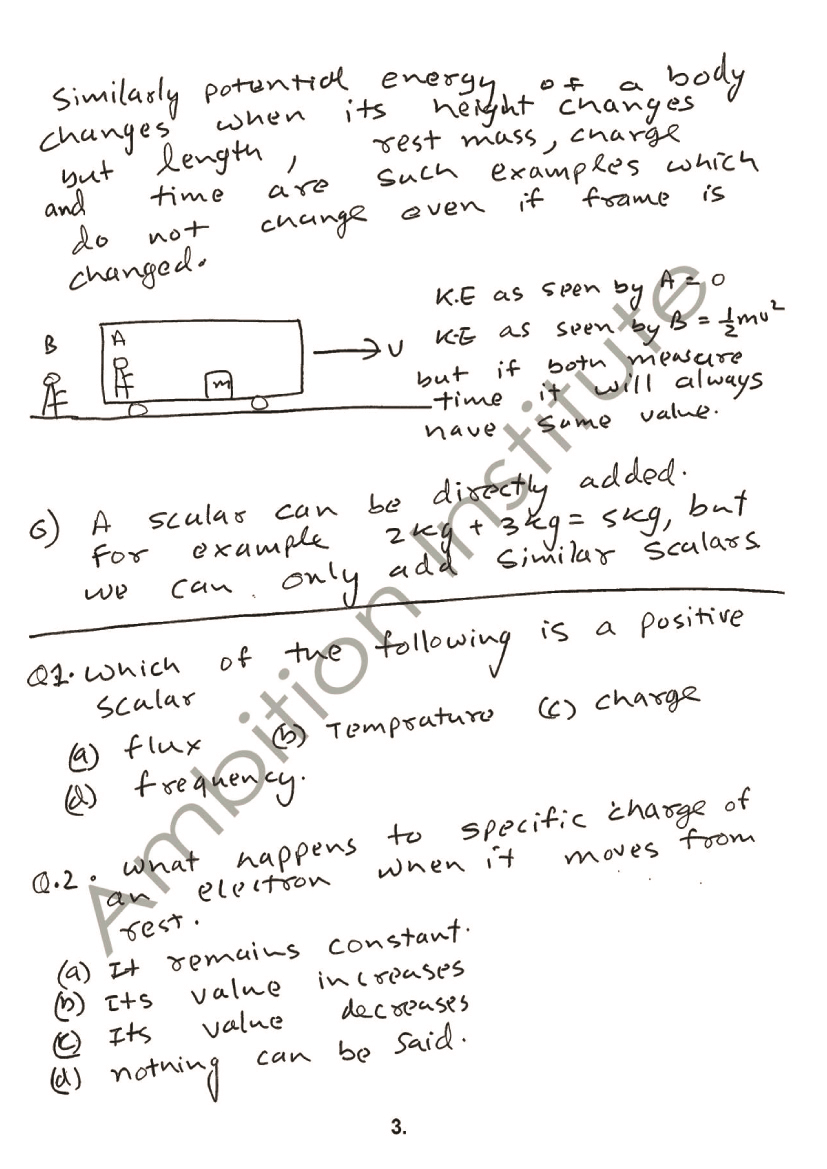 Similarly potential energy of a body
changes when its height changes
but length, rest mass, charge
and time are such examples which
do not change even if frame is
changed.
K.E as seen by A = 0
K.E as seen by B = ½mv²
but if both measure
time it will always
have same value.
B
A
m
v
6) A scalar can be directly added.
For example 2kg + 3kg = 5kg, but
we can only add similar scalars
Q1. Which of the following is a positive
scalar
(a) flux (b) Temprature (c) charge
(d) frequency.
Q.2. What happens to specific charge of
an electron when it moves from
rest.
(a) It remains constant.
(b) Its value increases
(c) Its value decreases
(d) nothing can be said.
Ambition Institute
3.